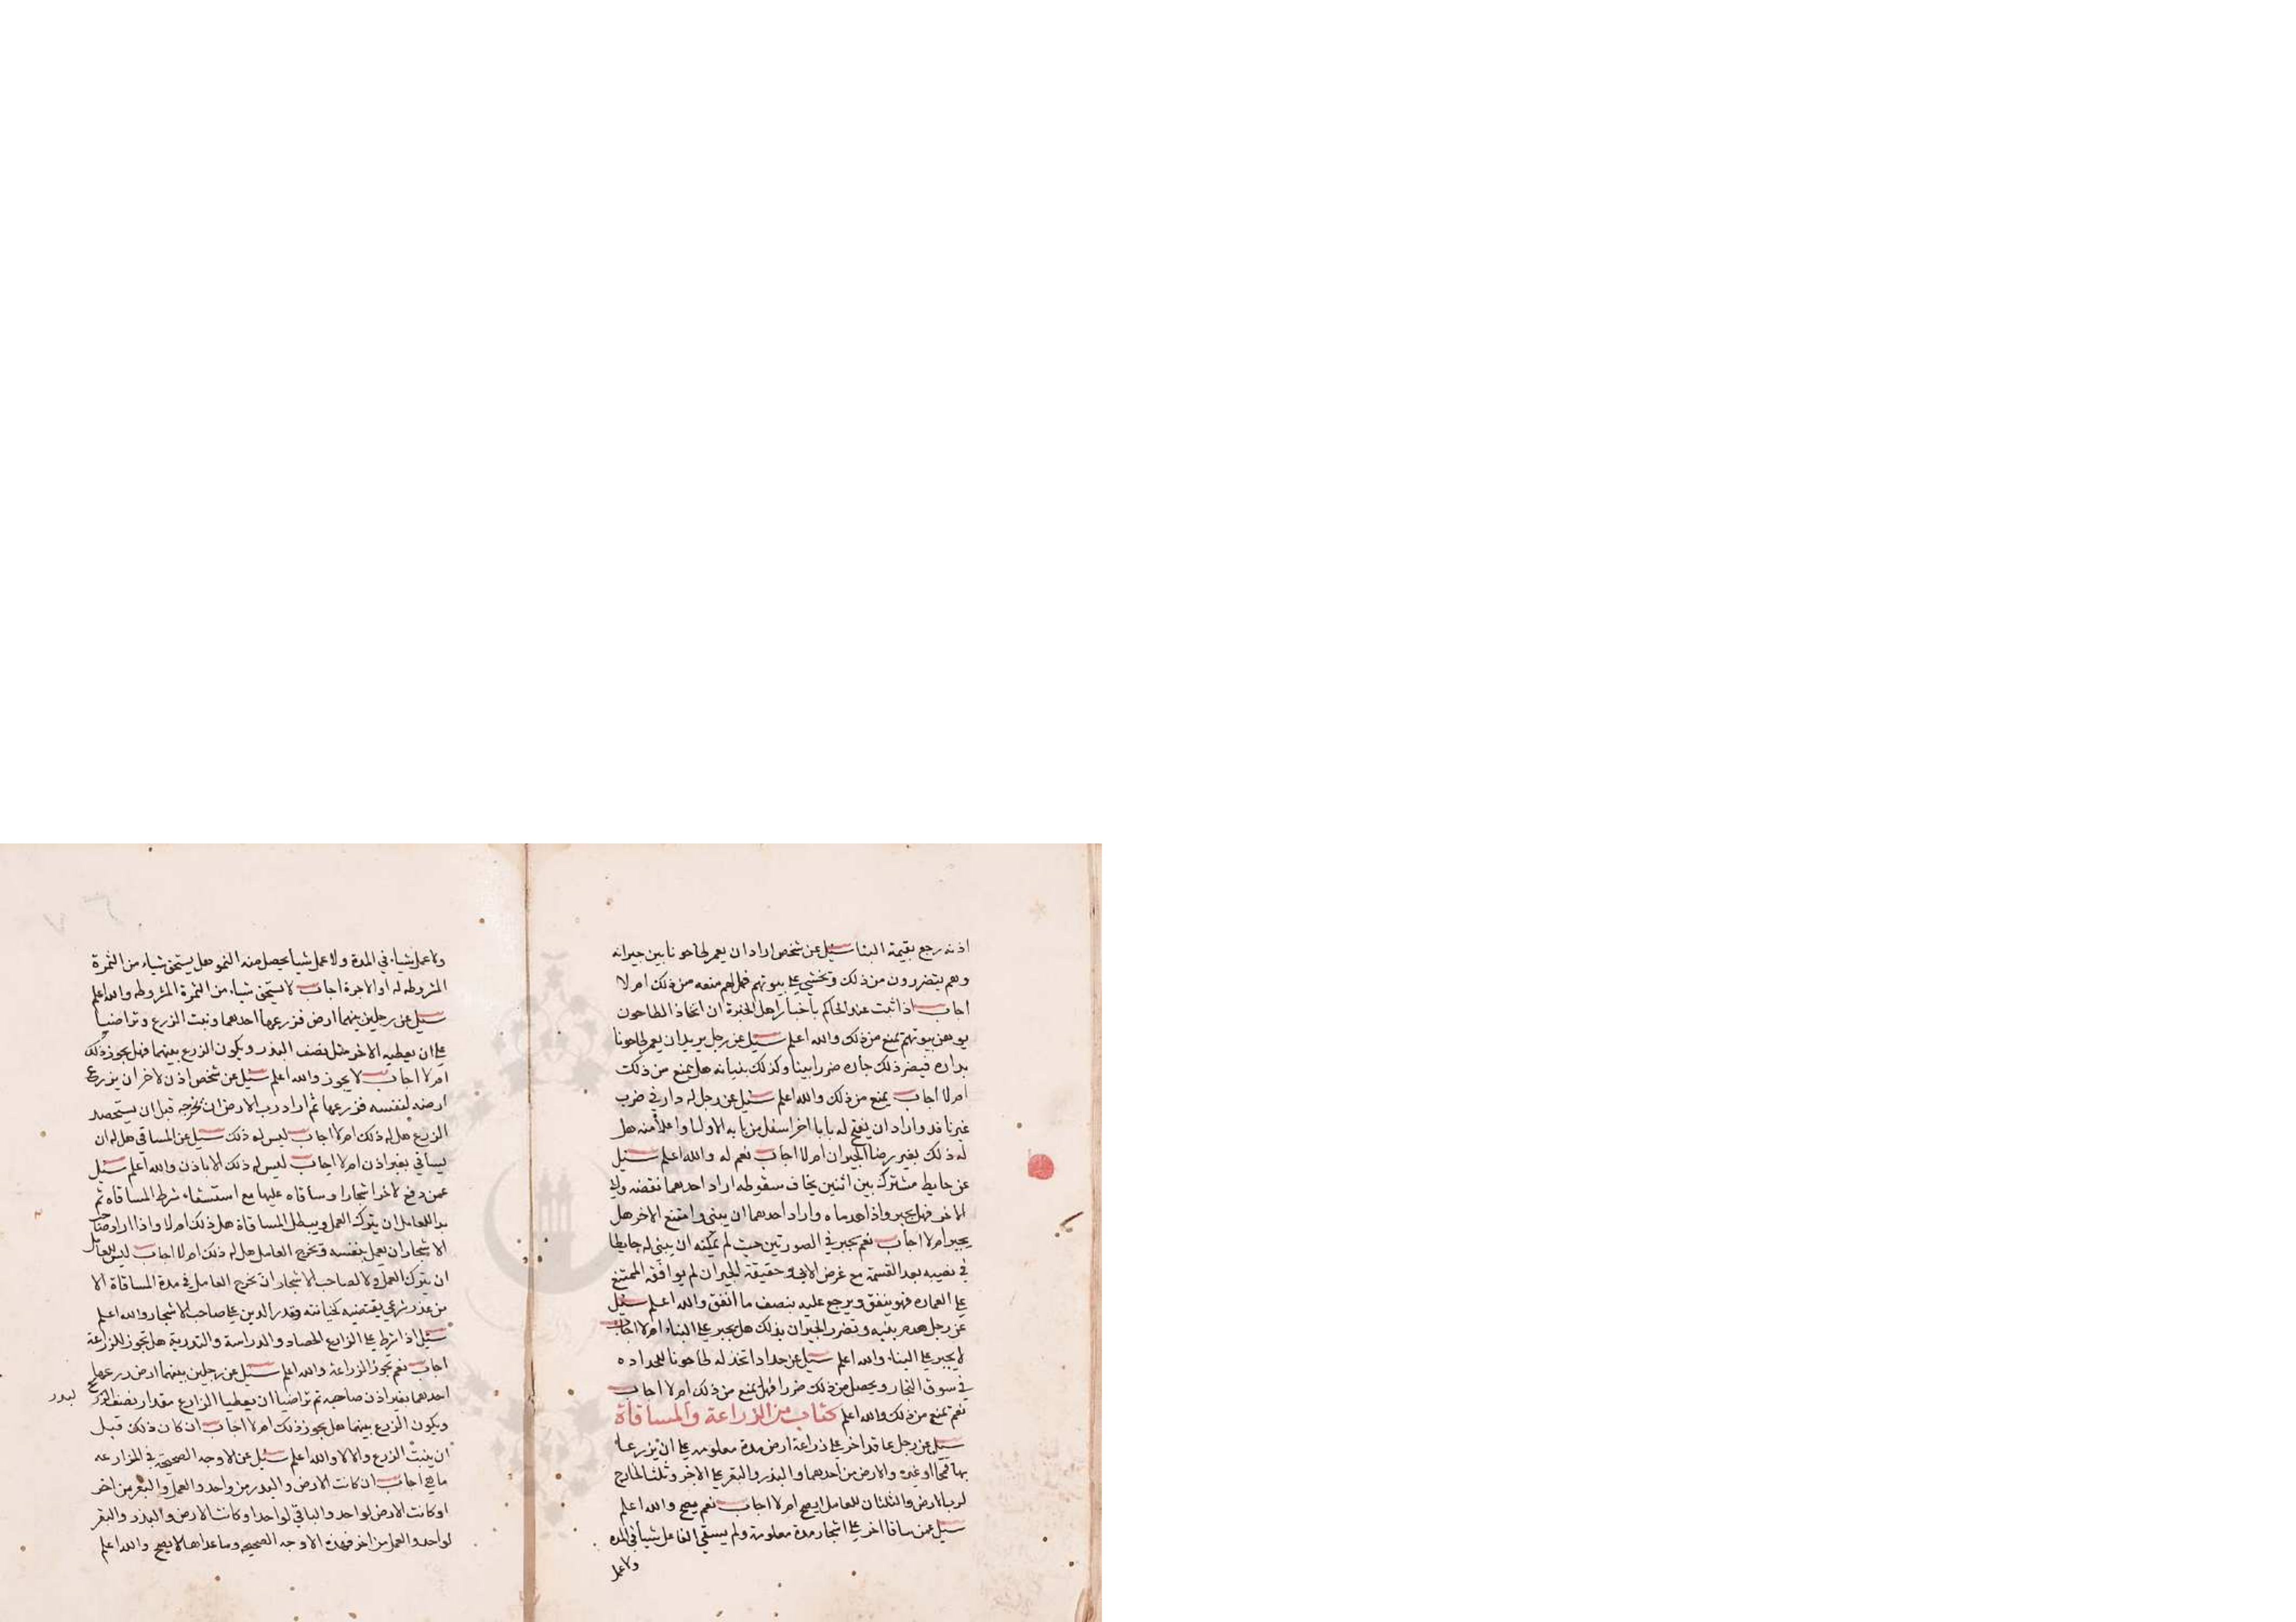 اذنه رجع بقيمة البنا سيل عن شخص اراد ان يعمر طاحونا بين جيرانه
وهم يتضررون من ذلك ويخشي علي بيوتهم فهل لهم منعه من ذلك ام لا
اجاب اذا ثبت عند الحاكم باخبار اهل الخبرة ان اتخاذ الطاحون
يوهن بيوتهم يمنع من ذلك والله اعلم سيل عن رجل يريد ان يعمر طاحونا
بداره فيضر ذلك جاره ضررا بينا وكذلك بنيانه هل يمنع من ذلك
ام لا اجاب يمنع من ذلك والله اعلم سيل عن رجل له دار في ضرب
غير نافد واراد ان يفتح له بابا اخر اسفل من بابه الاول او اعلا منه هل
له ذلك بغير رضا الجيران ام لا اجاب نعم له والله اعلم سيل
عن حايط مشترك بين اثنين يخاف سقوطه اراد احدهما نقضه وابي
الاخر فهل يجبر واذا هدماه واراد احدهما ان يبني وامتنع الاخر هل
يجبر ام لا اجاب نعم يجبر في الصورتين حيث لم يمكنه ان يبني له حايطا
في نصيبه بعد القسمة مع غرض وحقيقة الجبر ان لم يوافقه الممتنع
علي العماره فهو ينفق ويرجع عليه بنصف ما انفق والله اعلم سيل
عن رجل هدم بيته وتضرر الجيران بذلك هل يجبر علي البناء ام لا اجاب
لا يجبر علي البناء والله اعلم سيل عن حداد اتخذ له طاحونا للحداده
في سوق التجار ويحصل من ذلك ضررا فهل يمنع من ذلك ام لا اجاب
نعم يمنع من ذلك والله اعلم كتاب من الزراعة والمساقاة
سيل عن رجل عاقد اخر علي زراعة ارض مدة معلومه علي ان يزرعا
بها قمحا او غيره والارض من احدهما والبذر والبقر علي الاخر وثلث الخارج
لرب الارض والثلثان للعامل ايصح ام لا اجاب نعم يصح والله اعلم
سيل عمن ساقا اخر علي اشجار مدة معلومة ولم يسقي العامل شيا في المده
ولا عمل
ولا عمل شياء في المدة ولا عمل شيا يحصل منه النمو هل يستحق شياء من الثمرة
المشروطه له او الاجرة اجاب لا يستحق شياء من الثمرة المشروطه والله اعلم
سيل عن رجلين بينهما ارض فزرعها احدهما ونبت الزرع وتراضيا
علي ان يعطيه الاخر مثل نصف البذر ويكون الزرع بينهما فهل يجوز ذلك
ام لا اجاب لا يجوز والله اعلم سيل عن شخص اذن لاخر ان يزرع
ارضه لنفسه فزرعها ثم اراد رب الارض ان يخرجه قبل ان يستحصد
الزرع هل له ذلك ام لا اجاب ليس له ذلك سيل عن المساقي هل له ان
يساقي بغير اذن ام لا اجاب ليس له ذلك الا باذن والله اعلم سيل
عمن دفع لاخر اشجارا وساقاه عليها مع استسفاء شرط المساقاه ثم
بدا للعامل ان يترك العمل ويبطل المساقاة هل ذلك ام لا واذا اراد صاحب
الاشجار ان يعمل بنفسه ويخرج العامل هل له ذلك ام لا اجاب ليس للعامل
ان يترك العمل ولا لصاحب الاشجار ان يخرج العامل في مدة المساقاة الا
من عذر شرعي يقتضيه كخيانته وقدر الدين علي صاحب الاشجار والله اعلم
سيل اذا شرط علي الزارع الحصاد والدراسة والتدرية هل تجوز المزراعة
اجاب نعم تجوز المزراعة والله اعلم سيل عن رجلين بينهما ارض زرعها
احدهما بغير اذن صاحبه ثم تراضيا ان يعطيا الزارع مقدار نصف
ويكون الزرع بينهما هل يجوز ذلك ام لا اجاب ان كان ذلك قبل
ان ينبت الزرع والا لا والله اعلم سيل عن الاوجه الصحيحة في المزارعه
ما هي اجاب ان كانت الارض والبدر من واحد والعمل والبقر من اخر
او كانت الارض لواحد والباقي لواحد او كانت الارض والبذر والبقر
لواحد والعمل من اخر فهذه الاوجه الصحيحه وما عداها لا يصح والله اعلم